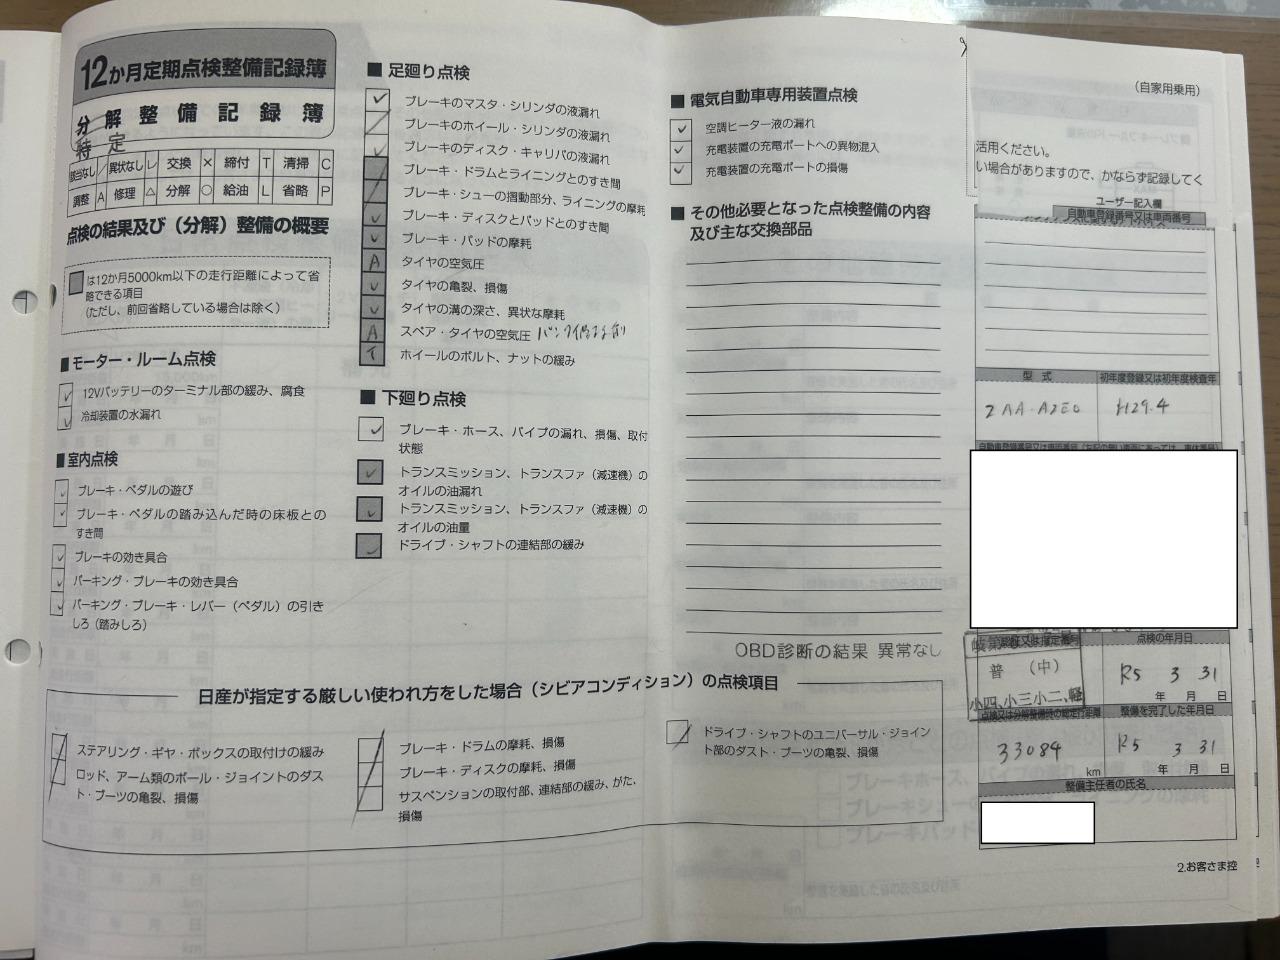 12か月定期点検整備記録簿
分解整備記録簿
特定
該当なし / 異状なし レ 交換 × 締付 T 清掃 C
調整 A 修理 △ 分解 ○ 給油 L 省略 P
点検の結果及び（分解）整備の概要
は12か月5000km以下の走行距離によって省
略できる項目
（ただし、前回省略している場合は除く）
■ モーター・ルーム点検
レ 12Vバッテリーのターミナル部の緩み、腐食
レ 冷却装置の水漏れ
■ 室内点検
レ ブレーキ・ペダルの遊び
レ ブレーキ・ペダルの踏み込んだ時の床板との
すき間
レ ブレーキの効き具合
レ パーキング・ブレーキの効き具合
レ パーキング・ブレーキ・レバー（ペダル）の引き
しろ（踏みしろ）
■ 足廻り点検
レ ブレーキのマスタ・シリンダの液漏れ
/ ブレーキのホイール・シリンダの液漏れ
レ ブレーキのディスク・キャリパの液漏れ
/ ブレーキ・ドラムとライニングとのすき間
/ ブレーキ・シューの摺動部分、ライニングの摩耗
レ ブレーキ・ディスクとパッドとのすき間
レ ブレーキ・パッドの摩耗
A タイヤの空気圧
レ タイヤの亀裂、損傷
レ タイヤの溝の深さ、異状な摩耗
A スペア・タイヤの空気圧
T ホイールのボルト、ナットの緩み
■ 下廻り点検
レ ブレーキ・ホース、パイプの漏れ、損傷、取付
状態
レ トランスミッション、トランスファ（減速機）の
オイルの油漏れ
レ トランスミッション、トランスファ（減速機）の
オイルの油量
レ ドライブ・シャフトの連結部の緩み
■ 電気自動車専用装置点検
レ 空調ヒーター液の漏れ
レ 充電装置の充電ポートへの異物混入
レ 充電装置の充電ポートの損傷
■ その他必要となった点検整備の内容
及び主な交換部品
OBD診断の結果 異常なし
日産が指定する厳しい使われ方をした場合（シビアコンディション）の点検項目
/ ステアリング・ギヤ・ボックスの取付けの緩み
ロッド、アーム類のボール・ジョイントのダス
ト・ブーツの亀裂、損傷
/ ブレーキ・ドラムの摩耗、損傷
ブレーキ・ディスクの摩耗、損傷
サスペンションの取付部、連結部の緩み、がた、
損傷
/ ドライブ・シャフトのユニバーサル・ジョイン
ト部のダスト・ブーツの亀裂、損傷
（自家用乗用）
活用ください。
い場合がありますので、かならず記録してく
ユーザー記入欄
自動車登録番号又は車両番号
型式 初年度登録又は初年度検査年
ZAA-AZE0 H29.4
認証又は指定番号 点検の年月日
普（中）
小四、小三小二、軽
R5 3 31
年 月 日
点検又は分解整備時の総走行距離 整備を完了した年月日
33084
km
R5 3 31
年 月 日
整備主任者の氏名
2.お客さま控